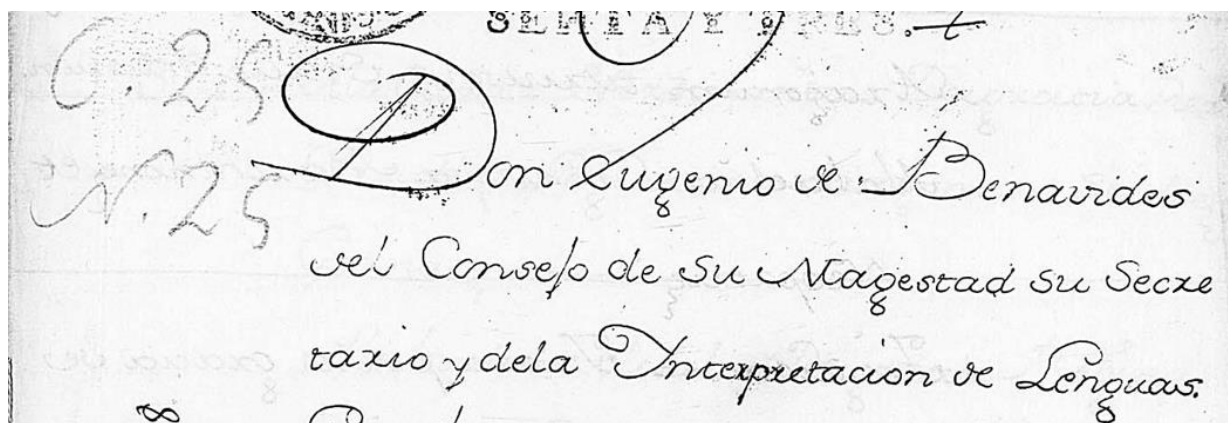 SENTA Y TRES.
C. 25
N. 25
Don Eugenio de Benavides
del Consejo de Su Magestad su Secre
tario y dela Interpretacion de Lenguas.